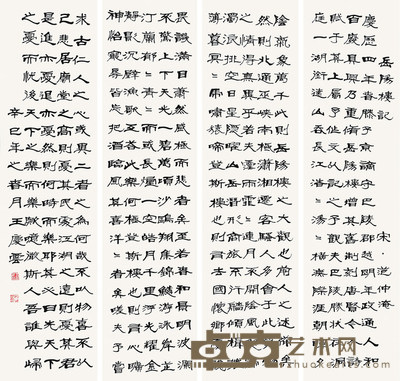 岳陽樓記 宋·范仲淹
慶曆四年春滕子京謫守巴陵郡越明年政通人和
百廢具興乃重修岳陽樓增其舊制刻唐賢今人詩
賦于其上屬予作文以記之予觀夫巴陵勝狀在洞
庭一湖銜遠山吞長江浩浩湯湯橫無際涯朝暉夕
陰氣象萬千此則岳陽樓之大觀也前人之述備矣
然則北通巫峽南極瀟湘遷客騷人多會于此覽物
之情得無異乎若夫霪雨霏霏連月不開陰風怒號
濁浪排空日星隱曜山岳潛形商旅不行檣傾楫摧
薄暮冥冥虎嘯猿啼登斯樓也則有去國懷鄉憂讒
畏譏滿目蕭然感極而悲者矣至若春和景明波瀾
不驚上下天光一碧萬頃沙鷗翔集錦鱗游泳岸芷
汀蘭郁郁青青而或長煙一空皓月千里浮光耀金
靜影沉璧漁歌互答此樂何極登斯樓也則有心曠
神怡寵辱皆忘把酒臨風其喜洋洋者矣嗟夫予嘗
求古仁人之心或異二者之為何哉不以物喜不以
己悲居廟堂之高則憂其民處江湖之遠則憂其君
是進亦憂退亦憂然則何時而樂耶其必曰先天下
之憂而憂後天下之樂而樂歟噫微斯人吾誰與歸
辛巳年之春月王慶雲